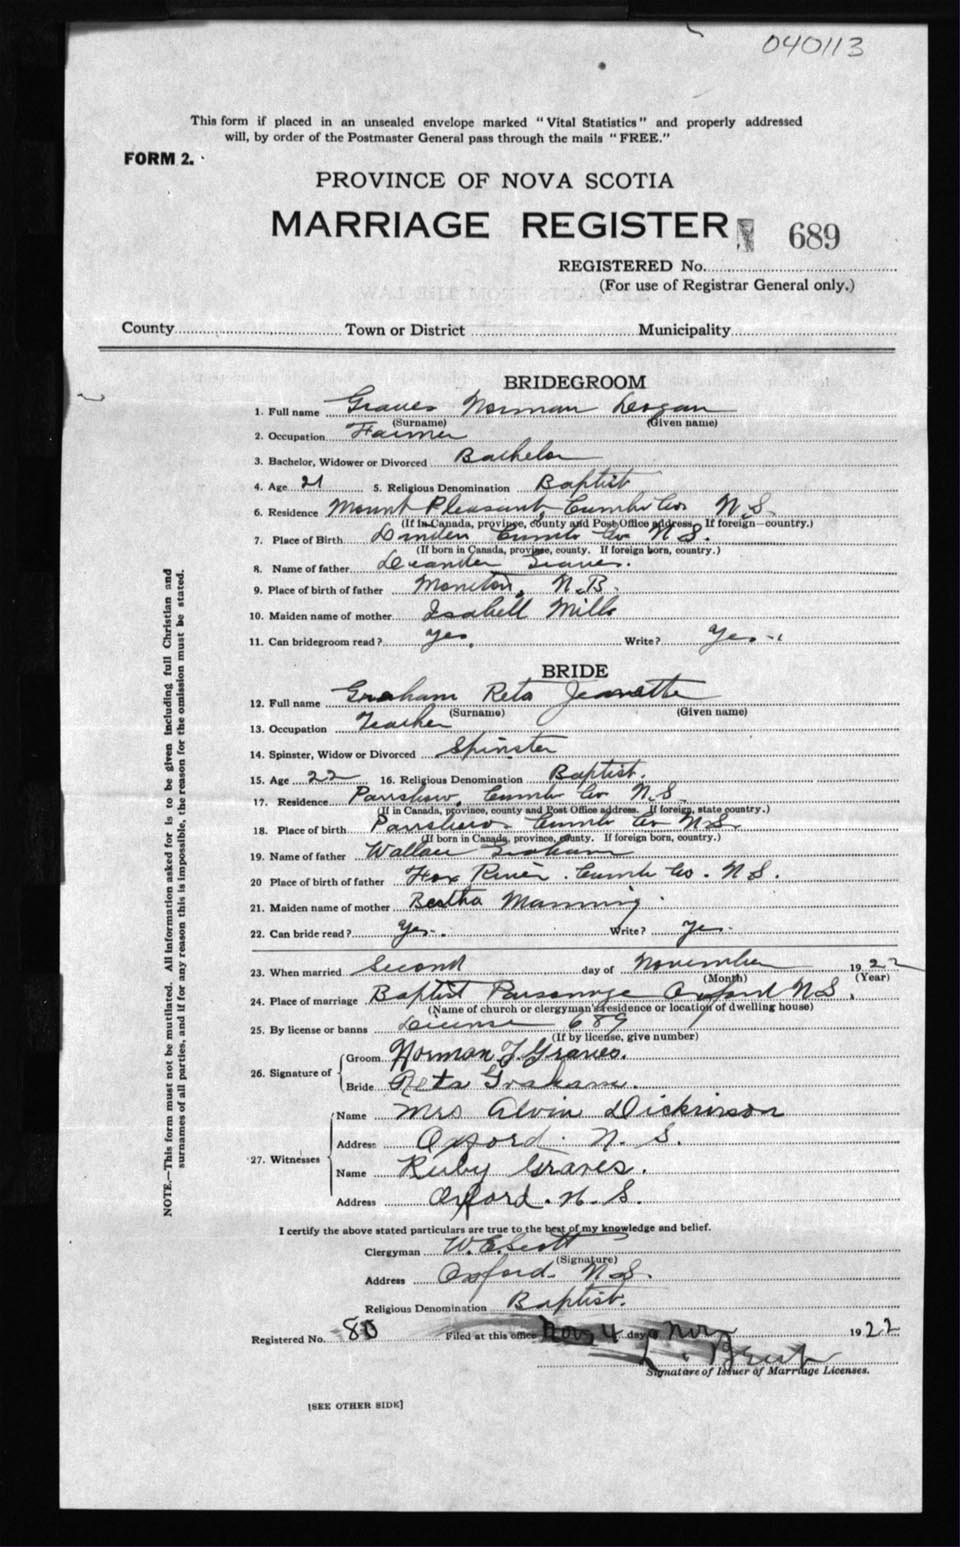 040113
This form if placed in an unsealed envelope marked "Vital Statistics" and properly addressed
will, by order of the Postmaster General pass through the mails "FREE."
FORM 2.
PROVINCE OF NOVA SCOTIA
MARRIAGE REGISTER 689
REGISTERED No.
(For use of Registrar General only.)
County Town or District Municipality
BRIDEGROOM
1. Full name Graves Norman Logan
(Surname) (Given name)
2. Occupation Farmer
3. Bachelor, Widower or Divorced Bachelor
4. Age 21 5. Religious Denomination Baptist
6. Residence Mount Pleasant Cumb Co N.S.
(If in Canada, province, county and Post Office address. If foreign—country.)
7. Place of Birth Linden Cumb Co N.S.
(If born in Canada, province, county. If foreign born, country.)
8. Name of father Leander Graves.
9. Place of birth of father Moncton, N.B
10. Maiden name of mother Isabell Mills
11. Can bridegroom read? Yes. Write? Yes.
BRIDE
12. Full name Graham Reta Jeanette
(Surname) (Given name)
13. Occupation Teacher
14. Spinster, Widow or Divorced Spinster
15. Age 22 16. Religious Denomination Baptist.
17. Residence Parrsboro, Cumb Co N.S.
(If in Canada, province, county and Post Office address. If foreign, state country.)
18. Place of birth Parrsboro Cumb Co N.S.
(If born in Canada, province, county. If foreign born, country.)
19. Name of father Wallace Graham
20 Place of birth of father Fox River. Cumb Co. N.S.
21. Maiden name of mother Bertha Manning
22. Can bride read? Yes. Write? Yes.
23. When married Second day of November 1922
(Month) (Year)
24. Place of marriage Baptist Parsonage Oxford N.S.
(Name of church or clergyman's residence or location of dwelling house)
25. By license or banns License 689
(If by license, give number)
26. Signature of
Groom Norman L. Graves.
Bride Reta Graham.
27. Witnesses
Name Mrs Alvin Dickinson
Address Oxford. N. S.
Name Ruby Graves.
Address Oxford. N. S.
I certify the above stated particulars are true to the best of my knowledge and belief.
Clergyman W. E. Scott
(Signature)
Address Oxford. N.S.
Religious Denomination Baptist.
Registered No. 80 Filed at this office Nov 4 day Nov 1922
Signature of Issuer of Marriage Licenses.
[SEE OTHER SIDE]
NOTE.—This form must not be mutilated. All information asked for is to be given including full Christian and
surnames of all parties, and if for any reason this is impossible, the reason for the omission must be stated.